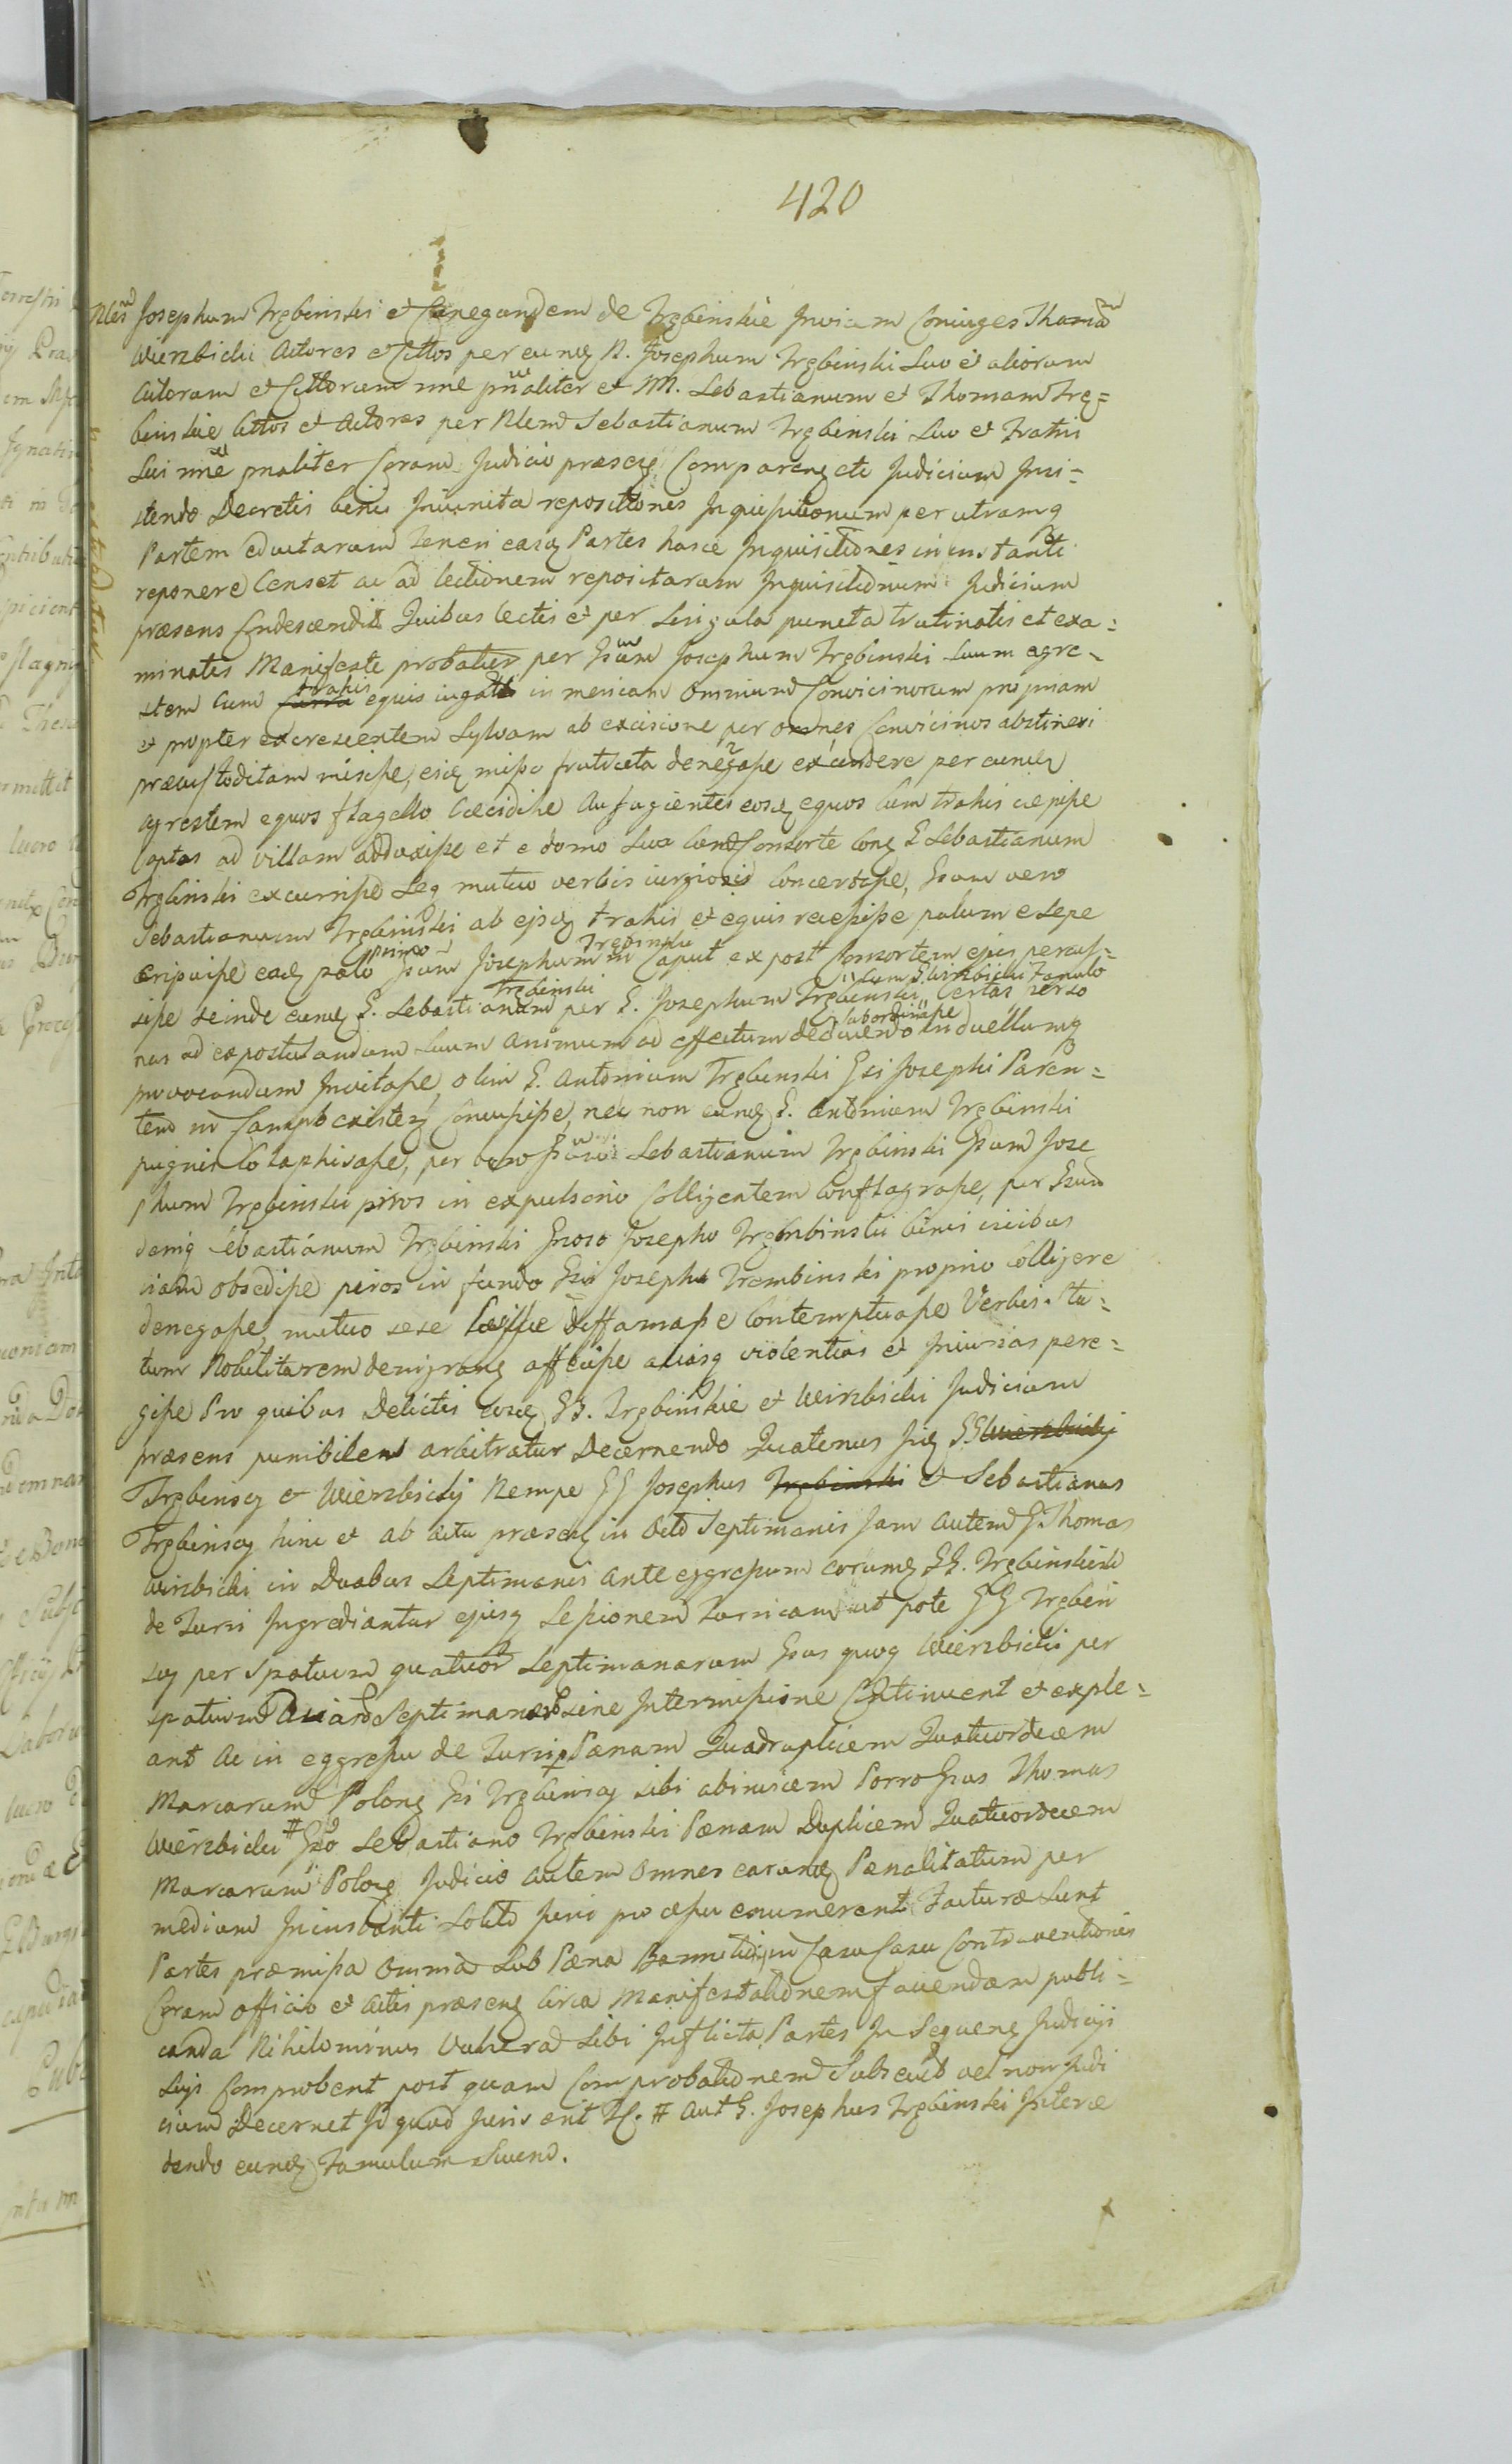 420
Nles Josephum Trębinski et Conegundem de Trębinskie Invicem Coniuges Thomã
Wierzbicki Actores et Cittos per eundẽ N. Josephum Trębinski Suo et aliorum
Actorum et Cittorum nne pnaliter et NN. Sebastianum et Thomam Trę=
binskie Cittos et Actores per Nlem Sebastianum Trębinski Suo et Fratris
Sui nne pnaliter Coram Judicio præsenẽ Comparenẽ etc Judicium Insi=
stendo Decretis binis Iniuncta repositionis Inquisitionum per utramq
Partem eductarum teneri easq Partes hasce Inquisitiones in instanti
reponere Censet ac ad lectionem repositarum Inquisitionum Judicium
præsens Condescendit Quibus lectis et per Singula puncta trutinatis et exa=
minatis Manifeste probatur per Gsum Josephum Trębinski Suum agre=
stem cum trahis equis iugatis in mericam Omnium Convicinorum propriam
et propter excrescentem Sylvam ab excisione per omnes Convicinos abstineri
præcustoditam misisse, eiq misso fruticeta denegasse excindere per eundẽ
agrestem equos flagello Cæcidisse Aufugientes eosq equos Cum trahis cæpisse
Captos ad villam adduxisse et e domo Sua Cum Consorte Conẽ G Sebastianum
Trębinski excurrisse Seq mutuo verbis iurgiosis Concertasse, Gsum vero
Sebastianum Trębinski ab ejsdẽ trahis et equis recepisse palum e sepe
eripuisse eodẽ palo primo Gsum Josephum Trębinski in Caput ex post Consortem ejus percus=
sisse deinde eundẽ G. Sebastianum Trębinski per G. Josephum Trębinski cum G Wirzbicki Famulo Certas perso
nas ad expostulandum Suum Animum ad effectum deducendo subordinasse in duellumq
provocandum Invitasse, olim G. Antonium Trębinski Gsi Josephi Paren=
tem in Campo existenẽ Concussisse, nec non eundẽ G. Antonium Trębinski
pugnis Colaphisasse, per vero Gsum Sebastianum Trębinski Gsum Jose
phum Trębinski piros in expulsorio Colligentem Conflagrasse, per Gsum
deniq Sebastianum Trębinski Gnoso Josepho Trębinski binis vicibus
viam obsedisse piros in fundo Gsi Josephi Trembinski proprio Colligere
denegasse, mutuo sese Læsisse Diffamasse Contemptuasse Verbis Sta=
tum Nobilitarem denigranẽ affecisse aliasq violentias et Iniurias pere=
gisse Pro quibus Delictis eosdẽ GG. Trębinskie et Wirzbicki Judicium
præsens punibiles arbitratur Decernendo Quatenus Iidẽ GG
Trębinscy et Wierzbicki Nempe GG Josephus et Sebastianus
Trębinscy hinc et ab actu præsenẽ in Octo Septimanis Jam autem G. Thomas
Wirzbicki in Duabus Septimanis Ante eggressum eorumdẽ GG. Trębinskich
de Turri Ingrediantur ejusq Sessionem Turricam ut pote GG Trębin
scy per Spatium quatuor Septimanarum Gsus quoq Wierzbicki per
spatium Duar Septimanar Sine Intermissione Continuent et exple=
ant Ac in eggressu de Turri Pænam Quadruplicem Quatuordecem
Marcarum Polonẽ Gsi Trębinscy sibi abinvicem Porro Gsus Thomas
Wierzbicki # Gso Sebastiano Trębinski Pænam Duplicem Quatuordecem
Marcarum Polonẽ Judicio autem Omnes earundẽ Pænalitatum per
medium In instanti Solito Juris processu enumerent Facturæ Sunt
Partes præmissa Omnia Sub Pæna Bannitionis in Casu Casu Contraventionis
Coram Officio et Actis præsenẽ Circa Manifestationem faciendam publi=
canda Nihilominus Vulnera Sibi Inflicta Partes In Sequenẽ Judicijs
Suis Comprobent post quam Comprobationem Subsecut vel non Judi
cium Decernet Id quod Juris erit # Aut G. Josephus Trębinski Interce
dendo eundẽ Famulum Suum.